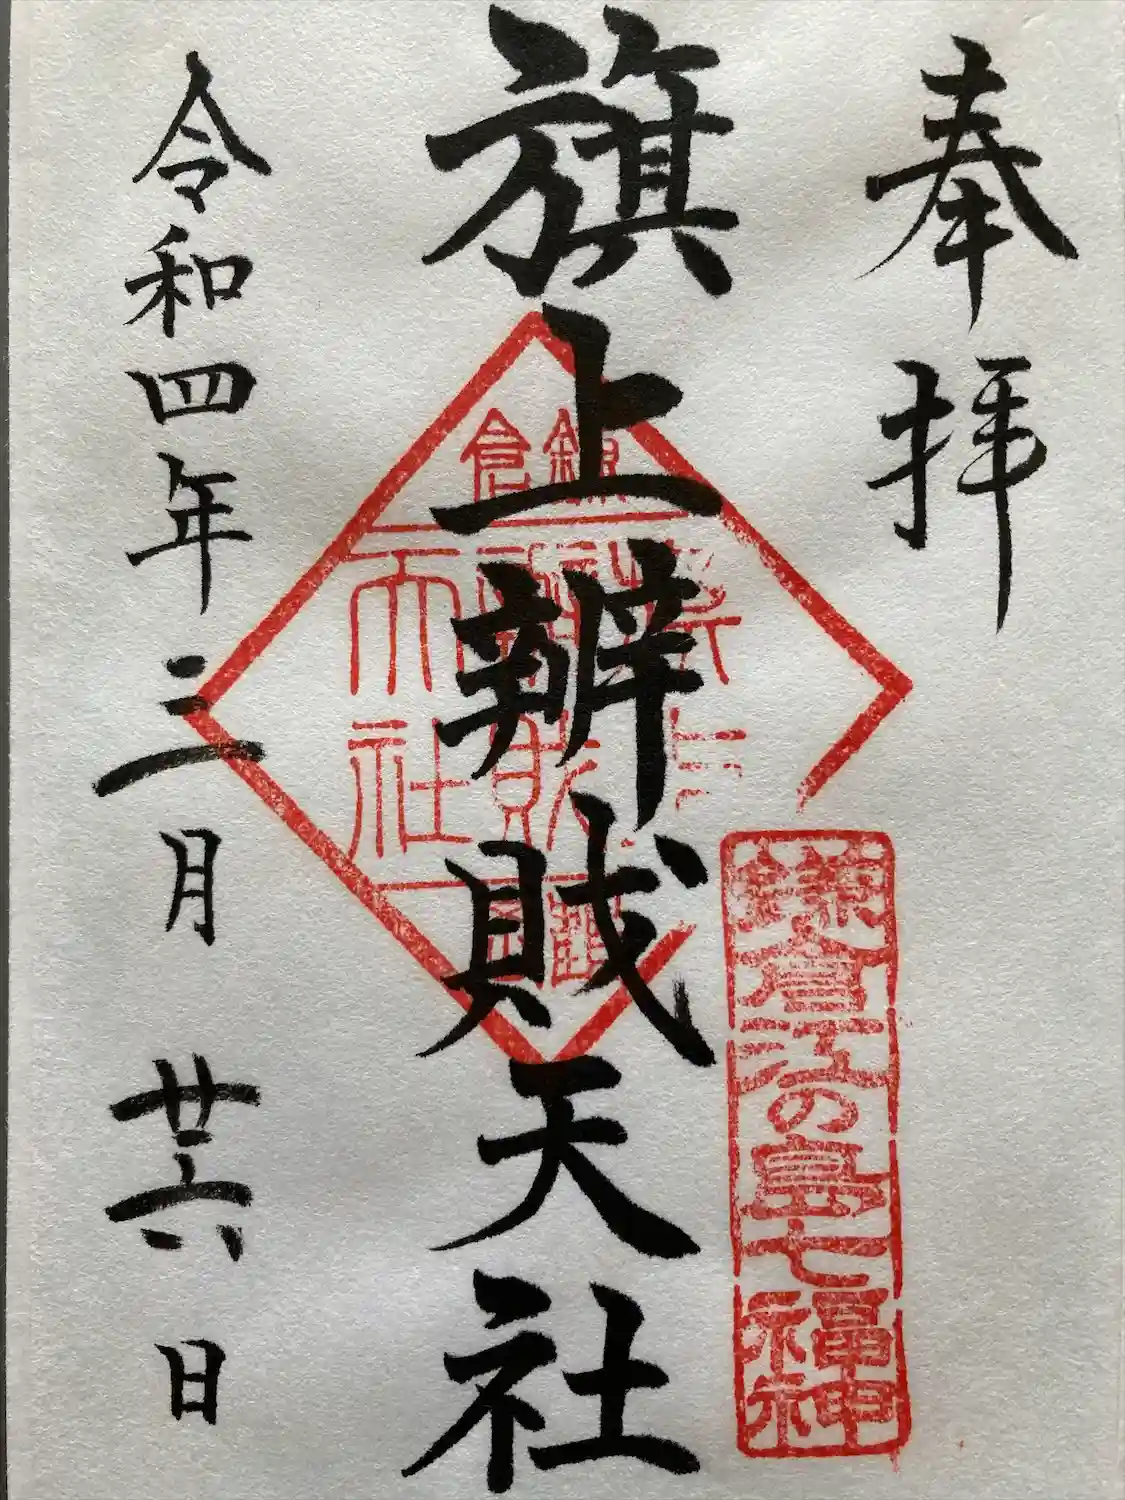 奉拝
鎌倉江の島七福神
旗上辨財天社
鎌倉
旗上
辨財
天社
令和四年三月廿六日